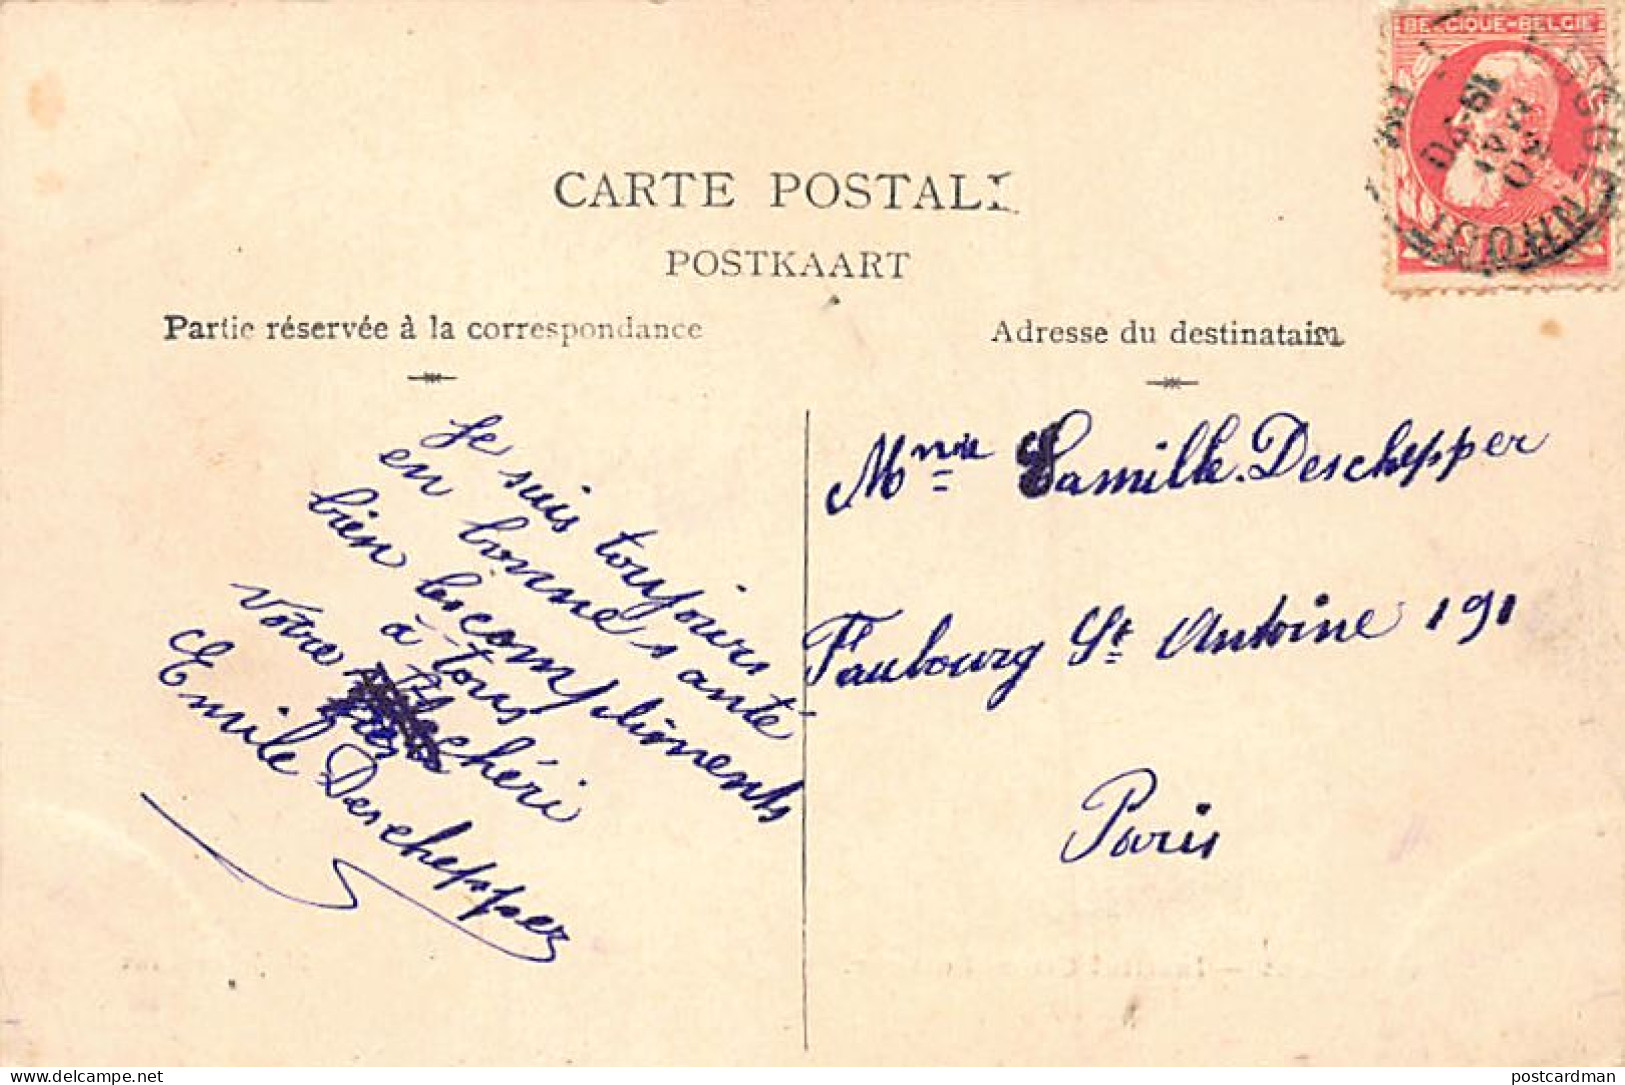 BELGIQUE-BELGIE
CARTE POSTALE
POSTKAART
Partie réservée à la correspondance
Adresse du destinataire
Je suis toujours
en bonne santé
bien les compliments
à tous
Votre chéri
Emile Descheppez
Mme Camille Deschepper
Faubourg St Antoine 191
Paris
delcampe.net
postcardman